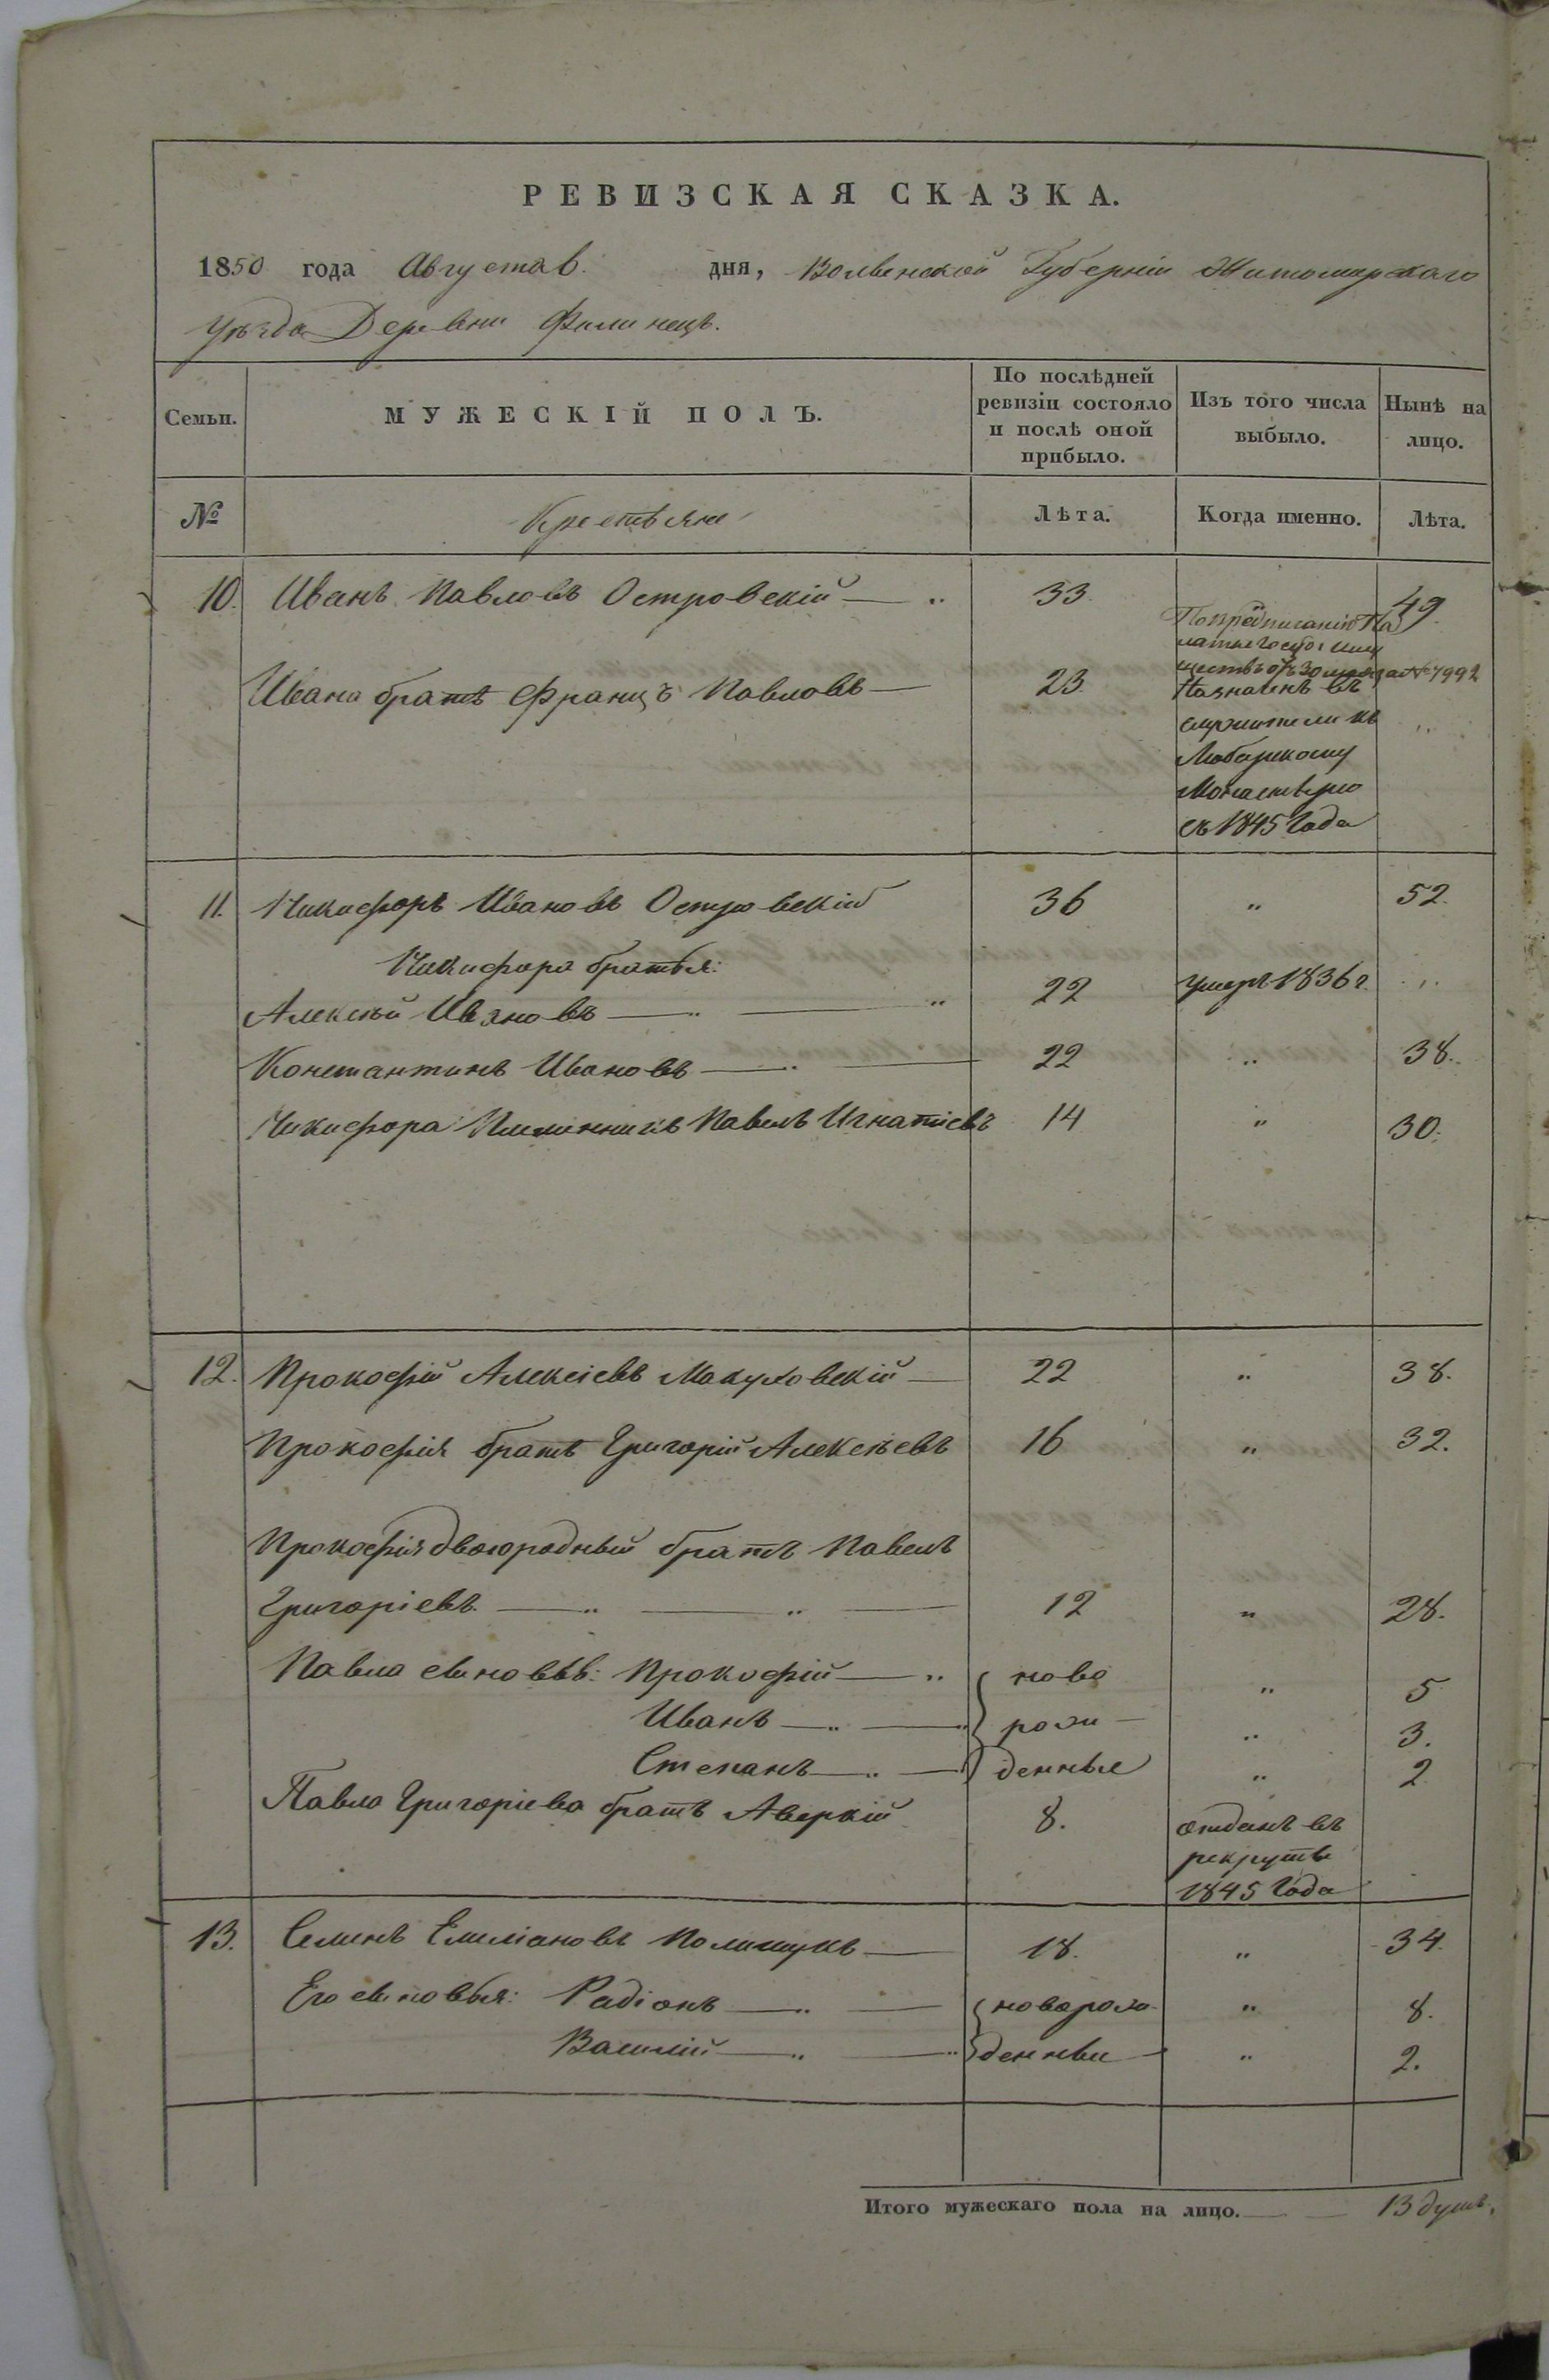 РЕВИЗСКАЯ СКАЗКА.
1850 года Августа 6. дня, Волынской Губерніи Житомирскаго
Уѣзда Деревни Филинецъ.
Семьи.
МУЖЕСКІЙ ПОЛЪ.
По послѣдней
ревизіи состояло
и послѣ оной
прибыло.
Изъ того числа
выбыло.
Нынѣ на
лицо.
№ Крестьяне Лѣта. Когда именно. Лѣта.
10. Иванъ Павловъ Островскій — „ 33. 49.
По предписанію Па
латы Госуд: Иму
ществъ отъ 30 марта № 7992
Ивана братъ Францъ Павловъ — 23. Назначенъ въ
служители къ „
Любарскому
Монастырю
съ 1845 Года
11. Никифоръ Ивановъ Островскій 36 „ 52.
Никифора братья:
Алексѣй Ивановъ — „ — „ 22 умеръ 1836 г. „
Константинъ Ивановъ — „ — 22 „ 38.
Никифора Племянникъ Павелъ Игнатіевъ 14 „ 30.
12. Прокофій Алексіевъ Макуховскій — 22 „ 38.
Прокофія братъ Григорій Алексѣевъ 16 „ 32.
Прокофія двоюродный братъ Павелъ
Григоріевъ. — „ — „ — 12 „ 28.
Павла сыновья: Прокофій — „ ново „ 5
Иванъ — „ — „ рож „ 3.
Степанъ — „ — денные „ 2
Павла Григоріева братъ Аверкій 8. отданъ въ
рекруты
1845 Года
13. Семенъ Емиліановъ Полищукъ — 18. „ 34.
Его сыновья: Радіонъ — „ — новорож „ 8.
Василій — „ — „ денные — „ 2.
Итого мужескаго пола на лицо. — — 13 душъ.